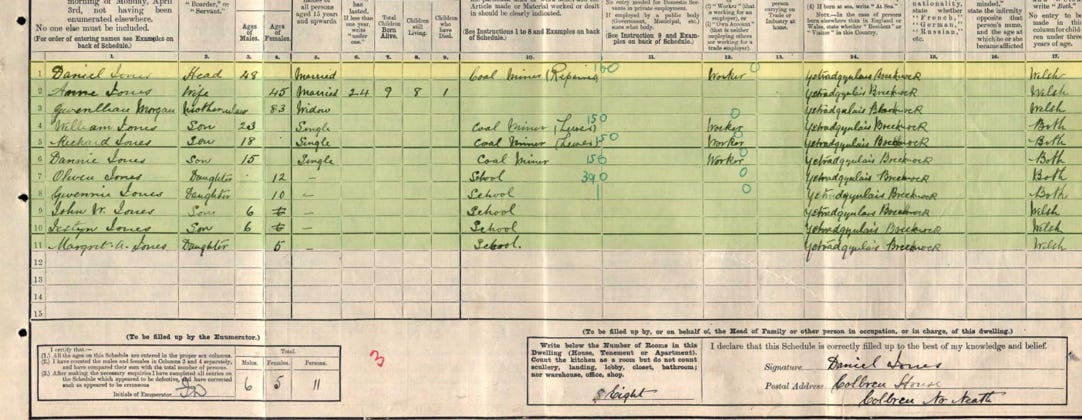 morning of Monday, April
3rd, not having been
enumerated elsewhere.
No one else must be included.
(For order of entering names see Examples on
back of Schedule.)
"Boarder," or
"Servant."
Ages
of
Males.
Ages
of
Females.
all persons
aged 15 years
and upwards
has
lasted.
If less
than
one year
write
"under
one."
Total
Children
Born
Alive.
Children
still
Living.
Children
who
have
Died.
Article made or Material worked or dealt
in should be clearly indicated.
(See Instructions 1 to 8 and Examples on back of
Schedule.)
No entry needed for Domestic Servants
in private employment.
If employed by a public body
(Government, Municipal, etc.)
state what body.
(See Instruction 9 and Examples
on back of Schedule.)
(2) "Worker" (that is
working for an
employer), or
(3) "Own Account"
(that is neither
employing others
nor working for
a trade employer).
person
carrying on
Trade or
Industry at
Home.
(4) If born at sea, write "At Sea."
NOTE.—In the case of persons
born elsewhere than in England or
Wales, state whether "Resident" or
"Visitor" in this Country.
nationality,
state whether
"French,"
"German,"
"Russian,"
etc.
state the infirmity
opposite that
person's name,
and the age at
which he or she
became afflicted
write "Both."
No entry to be
made in this
column for children
under three
years of age.
1 Daniel Jones Head 48 Married Coal Miner (Repairing) 150 Worker 0 Ystradgynlais Brecknock Welsh
2 Anne Jones Wife 45 Married 24 9 8 1 Ystradgynlais Brecknock Welsh
3 Gwenllian Morgan Mother in law 83 Widow Ystradgynlais Brecknock Welsh
4 William Jones Son 23 Single Coal Miner (Hewer) 150 Worker 0 Ystradgynlais Brecknock Both
5 Richard Jones Son 18 Single Coal Miner (Hewer) 150 Worker 0 Ystradgynlais Brecknock Both
6 Dannie Jones Son 15 Single Coal Miner 150 Worker 0 Ystradgynlais Brecknock Both
7 Olwen Jones Daughter 12 — School 390 0 Ystradgynlais Brecknock Both
8 Gwennie Jones Daughter 10 — School 0 Ystradgynlais Brecknock Both
9 John W. Jones Son 6 — School Ystradgynlais Brecknock Welsh
10 Iestyn Jones Son 6 — School Ystradgynlais Brecknock Welsh
11 Margret A. Jones Daughter 5 — School. Ystradgynlais Brecknock Welsh
12
13
14
15
(To be filled up by the Enumerator.)
I certify that:—
(1.) All the ages on this Schedule are entered in the proper sex columns.
(2.) I have counted the males and females in Columns 3 and 4 separately,
and have compared their sum with the total number of persons.
(3.) After making the necessary enquiries I have completed all entries on
the Schedule which appeared to be defective, and have corrected
such as appeared to be erroneous
Initials of Enumerator
Total.
Males. Females. Persons.
6 5 11
3
(To be filled up by, or on behalf of, the Head of Family or other person in occupation, or in charge, of this dwelling.)
Write below the Number of Rooms in this
Dwelling (House, Tenement or Apartment).
Count the kitchen as a room but do not count
scullery, landing, lobby, closet, bathroom;
nor warehouse, office, shop.
8 Eight
I declare that this Schedule is correctly filled up to the best of my knowledge and belief.
Signature Daniel Jones
Postal Address Colbren House
Colbren Nr Neath